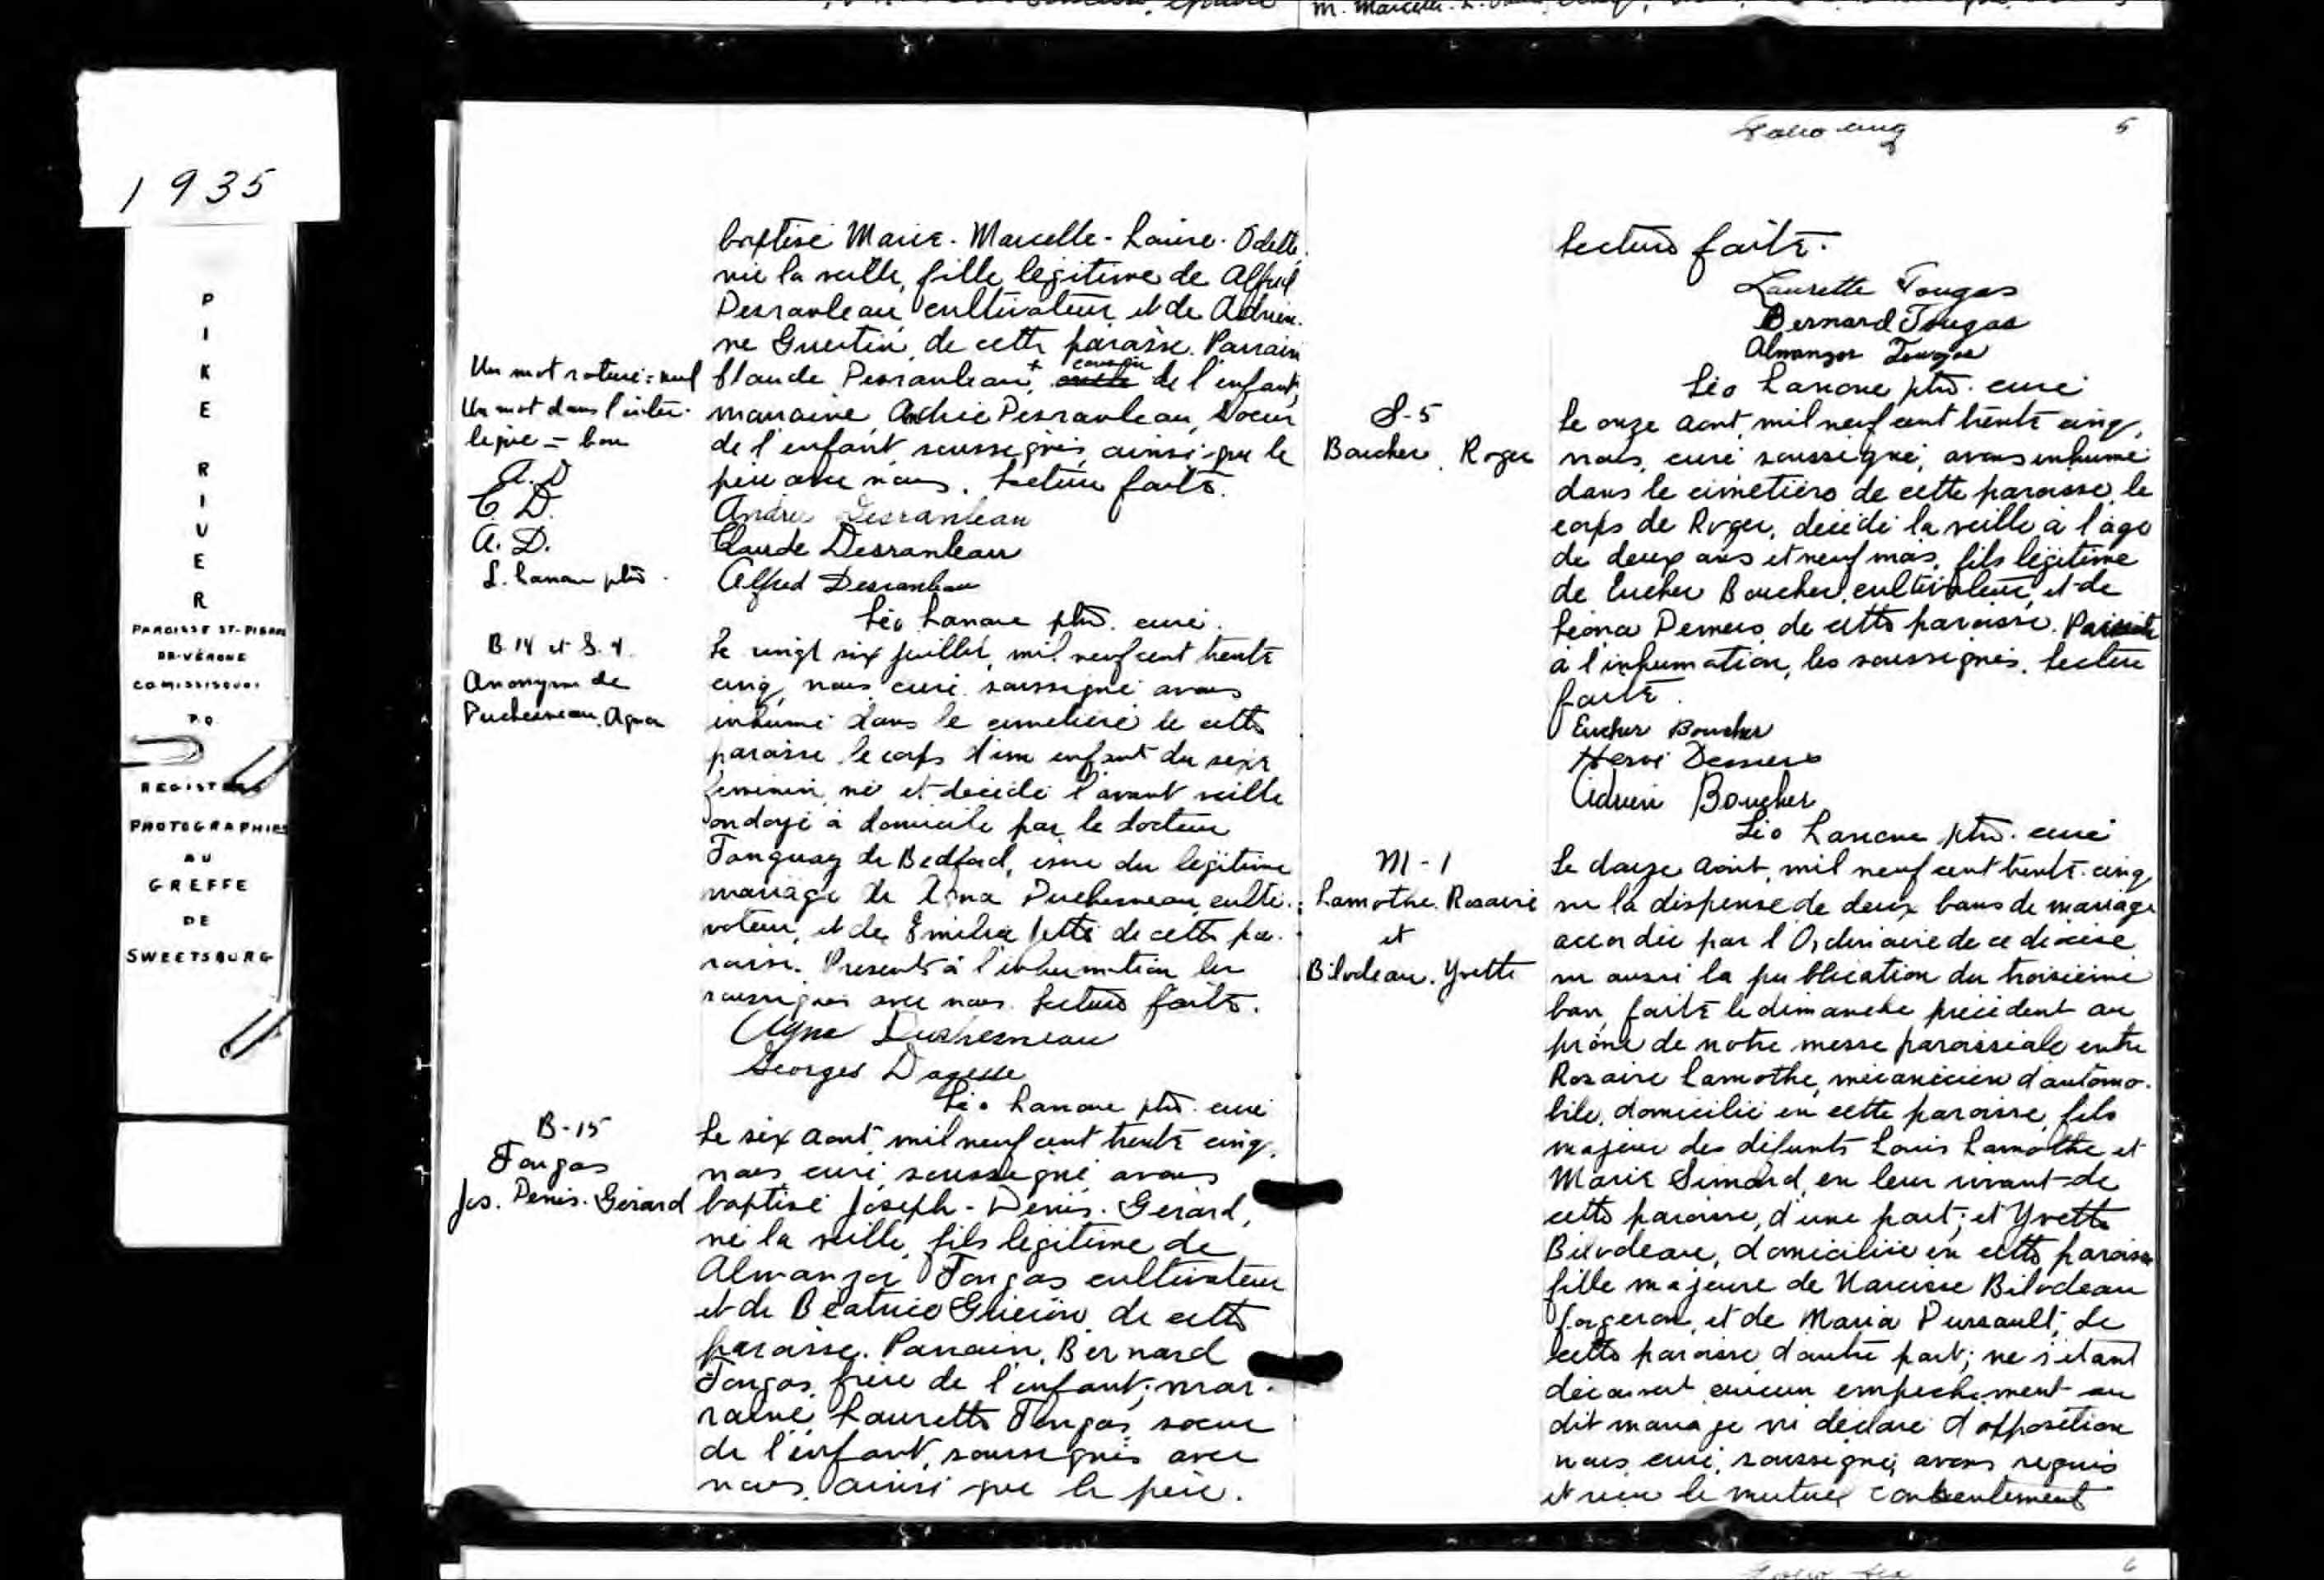 1935
PIKE
RIVER
PAROISSE ST-PIERRE
DE-VÉRONE
COMISSISQUOI
P.Q.
REGISTRES
PHOTOGRAPHIES
AU
GREFFE
DE
SWEETSBURG
baptisé Marie-Marcelle-Laure-Odette,
née la veille, fille légitime de Alfred
Desranleau, cultivateur et de Adrien-
ne Guertin, de cette paroisse. Parrain
Un mot raturé = nul
Un mot dans l'inter-
ligne = bon
A. D
C. D.
A. D.
L. Lanoue ptre.
Claude Desranleau, + cousin de l'enfant,
marraine, Andrée Desranleau, soeur
de l'enfant soussignés, ainsi que le
père avec nous. Lecture faite.
Andrée Desranleau
Claude Desranleau
Alfred Desranleau
Léo Lanoue ptre. curé.
B. 14 et S. 4.
Anonyme de
Duchesneau, Agna
Le vingt six juillet, mil neuf cent trente
cinq, nous, curé soussigné avons
inhumé dans le cimetière de cette
paroisse, le corps d'un enfant du sexe
féminin, né et décédé l'avant veille
ondoyé à domicile par le docteur
Tanguay de Bedford, issue du légitime
mariage de Duchesneau, culti-
vateur, et de Emilia Jetté de cette pa-
roisse. Présents à l'inhumation les
soussignés avec nous. Lecture faite.
Duchesneau
Georges Dagesse
Léo Lanoue ptre. curé
B-15
Tougas
Jos. Denis-Gérard
Le six août, mil neuf cent trente cinq,
nous curé soussigné avons
baptisé Joseph-Denis-Gérard,
né la veille, fils légitime de
Almanzor Tougas cultivateur
et de Béatrice de cette
paroisse. Parrain, Bernard
Tougas, frère de l'enfant; mar-
raine, Laurette Tougas soeur
de l'enfant, soussignés avec
nous, ainsi que le père.
Folio cinq
5
Lecture faite.
Laurette Tougas
Bernard Tougas
Almanzor Tougas
Léo Lanoue ptre. curé
S-5
Boucher, Roger
Le onze août, mil neuf cent trente cinq,
nous, curé soussigné, avons inhumé
dans le cimetière de cette paroisse, le
corps de Roger, décédé la veille à l'âge
de deux ans et neuf mois, fils légitime
de Eucher Boucher, cultivateur, et de
Léona Demers, de cette paroisse. Présents
à l'inhumation, les soussignés. Lecture
faite.
Eucher Boucher
Hervé Demers
Adrien Boucher
Léo Lanoue ptre. curé
M-1
Lamothe, Rosaire
et
Bilodeau, Yvette
Le douze août, mil neuf cent trente-cinq,
vu la dispense de deux bans de mariage
accordée par l'Ordinaire de ce diocèse
vu aussi la publication du troisième
ban, faite le dimanche précédent au
prône de notre messe paroissiale entre
Rosaire Lamothe, mécanicien d'automo-
bile, domicilié en cette paroisse, fils
majeur des défunts Louis Lamothe et
Marie Simard, en leur vivant de
cette paroisse, d'une part; et Yvette
Bilodeau, domiciliée en cette paroisse
fille majeure de Narcisse Bilodeau
forgeron, et de Maria Dussault, de
cette paroisse d'autre part; ne s'étant
découvert aucun empêchement au
dit mariage ni déclaré d'opposition
nous, curé, soussigné, avons requis
et reçu le mutuel consentement
6